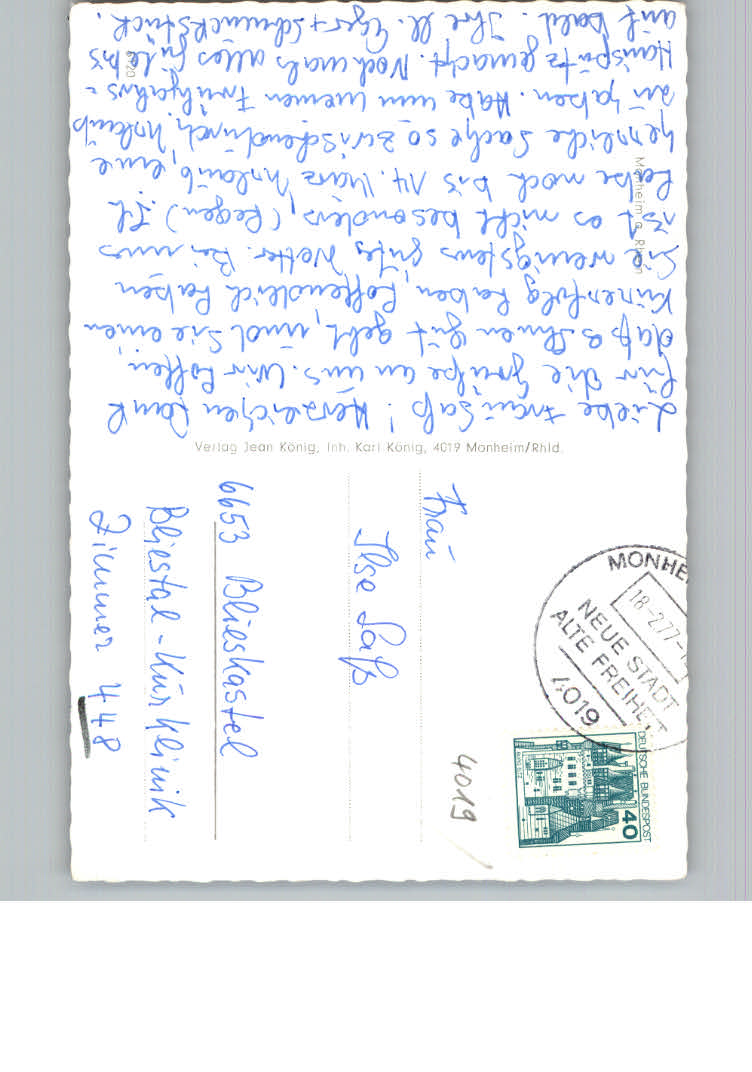 Liebe Frau Saß! Herzlichen Dank
für die Grüße an uns. Wir hoffen,
daß es Ihnen gut geht, und Sie einen
Kurerfolg haben, hoffendlich haben
Sie wenigstens gutes Wetter. Bei uns
ist es nicht besonders, (Regen) Ich
habe noch bis 14. März Urlaub, eine
herrliche Sache so zwischendurch Urlaub
zu haben. Habe nun meinen Frühjahrs-
Hausputz gemacht. Nochmals alles gute bis
auf bald. Ihre
Monheim a. Rhein
Verlag Jean König, Inh. Karl König, 4019 Monheim/Rhld.
Frau
Ilse Saß
6653 Blieskastel
Bliestal-Kurklinik
Zimmer 448
4019
MONHE
18-2.77-1
NEUE STADT
ALTE FREIHEIT
4019
DEUTSCHE BUNDESPOST
40